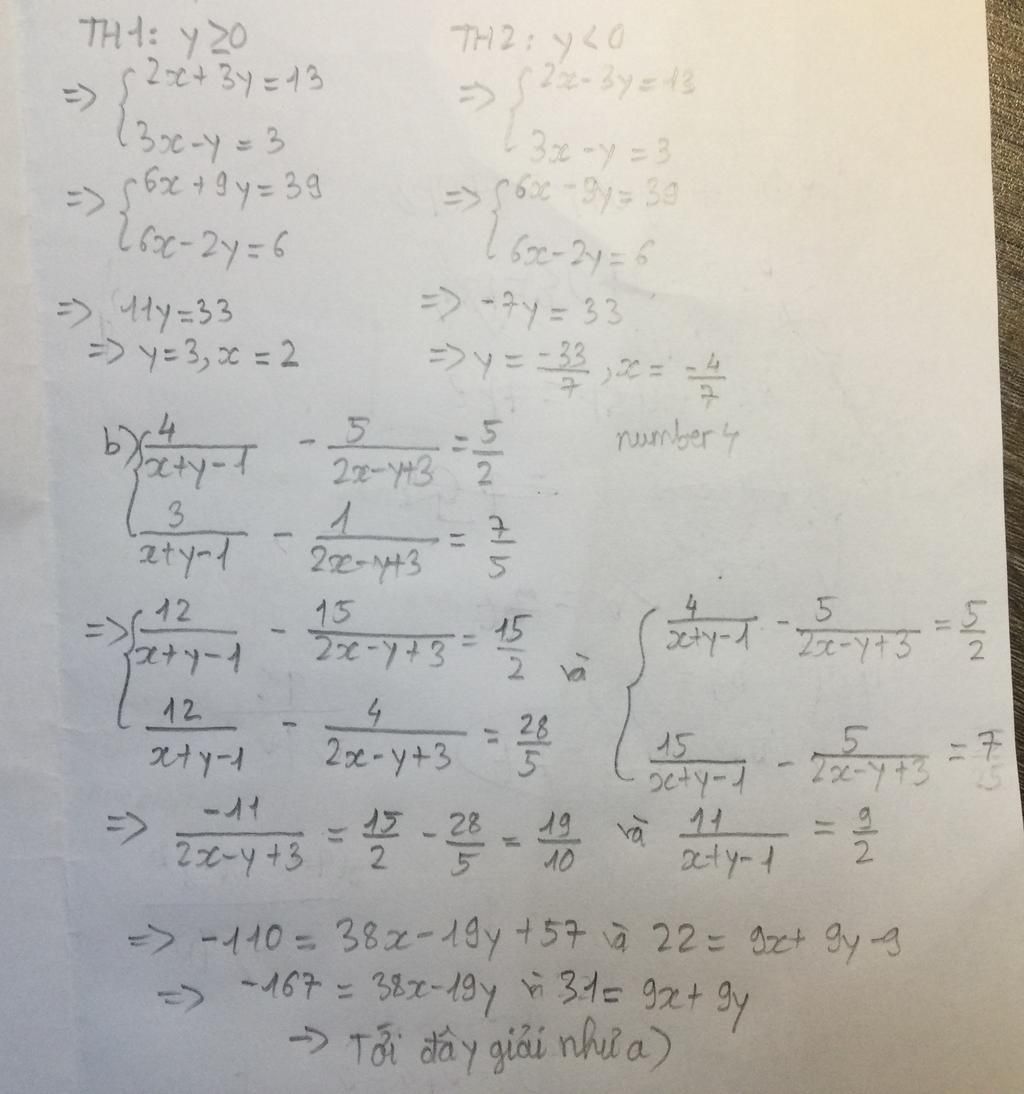 TH1: y ≥ 0
=> { 2x + 3y = 13
3x - y = 3
=> { 6x + 9y = 39
6x - 2y = 6
=> 11y = 33
=> y = 3, x = 2
TH2: y < 0
=> { 2x - 3y = 13
3x - y = 3
=> { 6x - 9y = 39
6x - 2y = 6
=> -7y = 33
=> y = -33/7, x = -4/7
number 4
b) { 4/(x+y-1) - 5/(2x-y+3) = 5/2
3/(x+y-1) - 1/(2x-y+3) = 7/5
=> { 12/(x+y-1) - 15/(2x-y+3) = 15/2
12/(x+y-1) - 4/(2x-y+3) = 28/5
và
{ 4/(x+y-1) - 5/(2x-y+3) = 5/2
15/(x+y-1) - 5/(2x-y+3) = 7
=> -11/(2x-y+3) = 15/2 - 28/5 = 19/10 và 11/(x+y-1) = 9/2
=> -110 = 38x - 19y + 57 và 22 = 9x + 9y - 9
=> -167 = 38x - 19y và 31 = 9x + 9y
-> Tới đây giải như a)